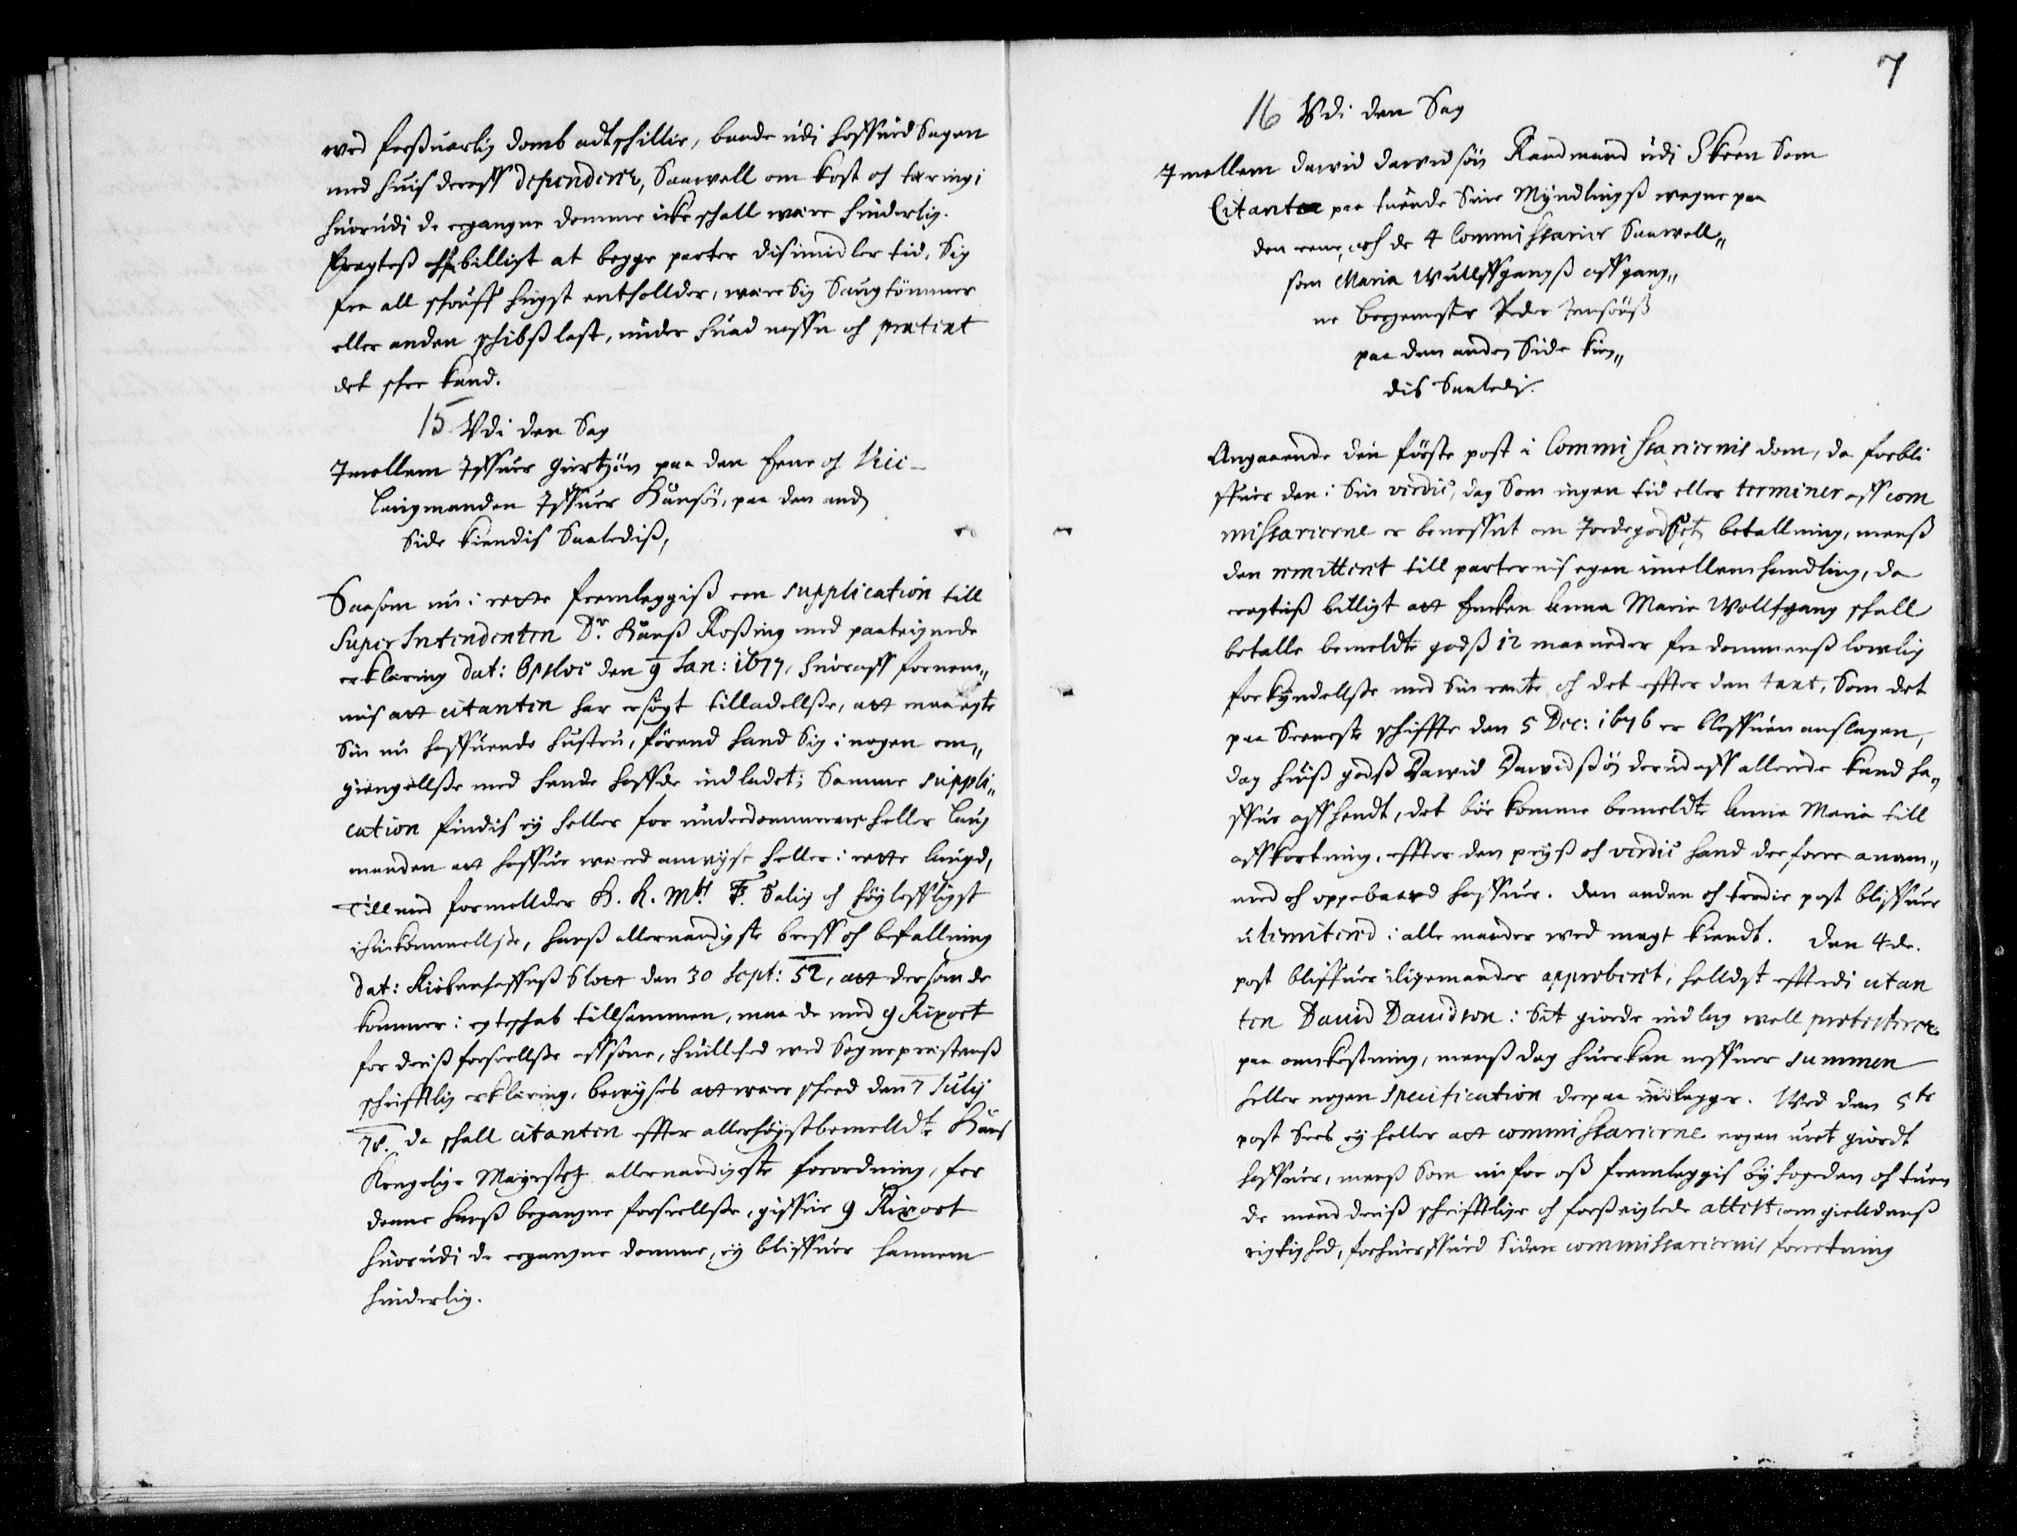 wed forßuarlig domb adtschillie, baade udi hoffuid Sagen
med huis deraff dependerer, Saawell om kost och tæring;
huorudi de ergangne domme icke schall være hinderlig.
Eragtes billigt at begge parter disimidler tid, Sig
fra all schouff hugst entholder, være Sig Saugtömmer
eller anden schibßlast, under huad naffn och prætext
det schee kand.
15 Udi den Sag
Imellem Iffuer Giurtzön paa den Eene och Vice
Laugmanden Iffuer Hansön, paa den anden
Side kiendis Saaledis,
Saasom nu i rette fremleggis een supplication till
Super Intendenten Dr. Hans Rosing med paateignede
erklæring dat: Opsloe den 9 Jan: 1677, huoraff fornem„
mis att citanten har ersögt tilladellße, att maa egte
Sin nu haffuende hustru, förend hand Sig i nogen om„
giengellße med hende haffde indladet; Samme suppli„
cation findis ey heller for underdommeren heller laug
manden att haffue wærid anwyst heller i rette lagd,
Till med formelder H. K. Mtt. F. 3. Salig och höyloffligst
ihukommellße, hans allernaadigste breff och befalning
dat: Kiöbenhaffns Slott den 30 Sept: 52, att dersom de
kommer i egteschab tillsammen, maa de med 9 Rixort
for deris forseellße affsone, huilched wed Sogneprestens
schrifftlig erklæring, bewyses att være scheed den 7 July
78. da schall citanten effter allerhöystbemelldte Hans
Kongelige Mayestetz allernaadigste forordning, for
denne hans begangne forseellße, giffue 9 Rixort
huorudi de ergangne domme, ey bliffuer hannem
hinderlig.
7
16 Udi den Sag
Imellem David Davidsön Raadmand udi Skeen Som
Citanter paa tuende Sine Myndlings wegne paa
den eene, och de 4 Commissarier Saawell„
som Maria Wulffgangs affgang„
ne Borgemester Peder Jensöns
paa den anden Side kien„
dis Saaledis.
Angaaende den förste post i Commissariernis dom, da forbli
ffuer den i Sin verdie, dog Som ingen tid eller terminer aff com
missarierne er beneffnt om Jordegodsets betalning, mens
den remitterit till parternis egen imellemhandling, da
eragtis billigt att Encken Anna Maria Wollfgang schall
betalle bemeldte gods 12 maaneder fra dommens lowlig
forkyndellße med Sin rente och det effter den taxt, Som det
paa Seeneste schiffte den 5 Dec: 1676 er bleffuen anslagen,
dog huis gods David Davidssön derudaff allerede kand ha„
ffue affhendt, det bör komme bemeldte Anna Maria till
affkortning, effter den pryß och verdie hand derfore anam„
med och oppebaared haffuer. Den anden och tredie post bliffuer
ulimiterid i alle maader wed magt kiendt. Den 4de.
post bliffuer iligemaader approberit, helldst effterdi citan
ten David Davidson i Sit giorde indlag well protesterer
paa omkostning, mens dog huercken neffner summen
heller nogen specification derpaa indlegger. Wed den 5te
post Sees ey heller att commissarierne nogen uret giordt
haffuer, mens Som nu for oss fremleggis byfogeden och tuen
de mend deris schrifftlige och forseiglede attest om gielldens
rigtighed, forhuerffuid siden commissariernis forretning